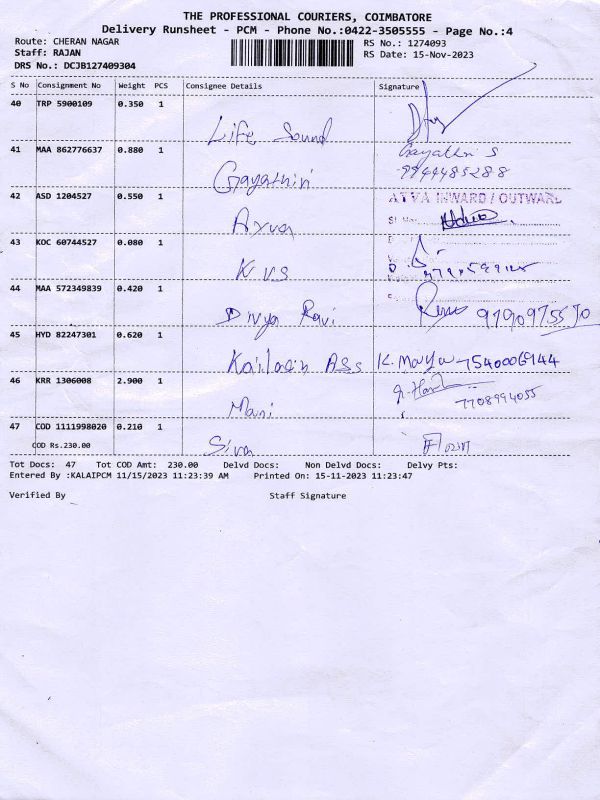 THE PROFESSIONAL COURIERS, COIMBATORE
Delivery Runsheet - PCM - Phone No.:0422-3505555 - Page No.:4
Route: CHERAN NAGAR RS No.: 1274093
Staff: RAJAN RS Date: 15-Nov-2023
DRS No.: DCJB127409304
S No Consignment No Weight PCS Consignee Details Signature
40 TRP 5900109 0.350 1
Life Sound
41 MAA 862776637 0.880 1 Gayathri S
Gayathiri 9944485288
42 ASD 1204527 0.550 1 ATVA INWARD / OUTWARD
43 KOC 60744527 0.080 1
KVS
44 MAA 572349839 0.420 1
Divya Ravi 9790975570
45 HYD 82247301 0.620 1
Kailash Ass K. Maya 7540006944
46 KRR 1306008 2.900 1
Mani 7708994055
47 COD 1111998020 0.210 1
COD Rs.230.00 Siva
Tot Docs: 47 Tot COD Amt: 230.00 Delvd Docs: Non Delvd Docs: Delvy Pts:
Entered By :KALAIPCM 11/15/2023 11:23:39 AM Printed On: 15-11-2023 11:23:47
Verified By Staff Signature